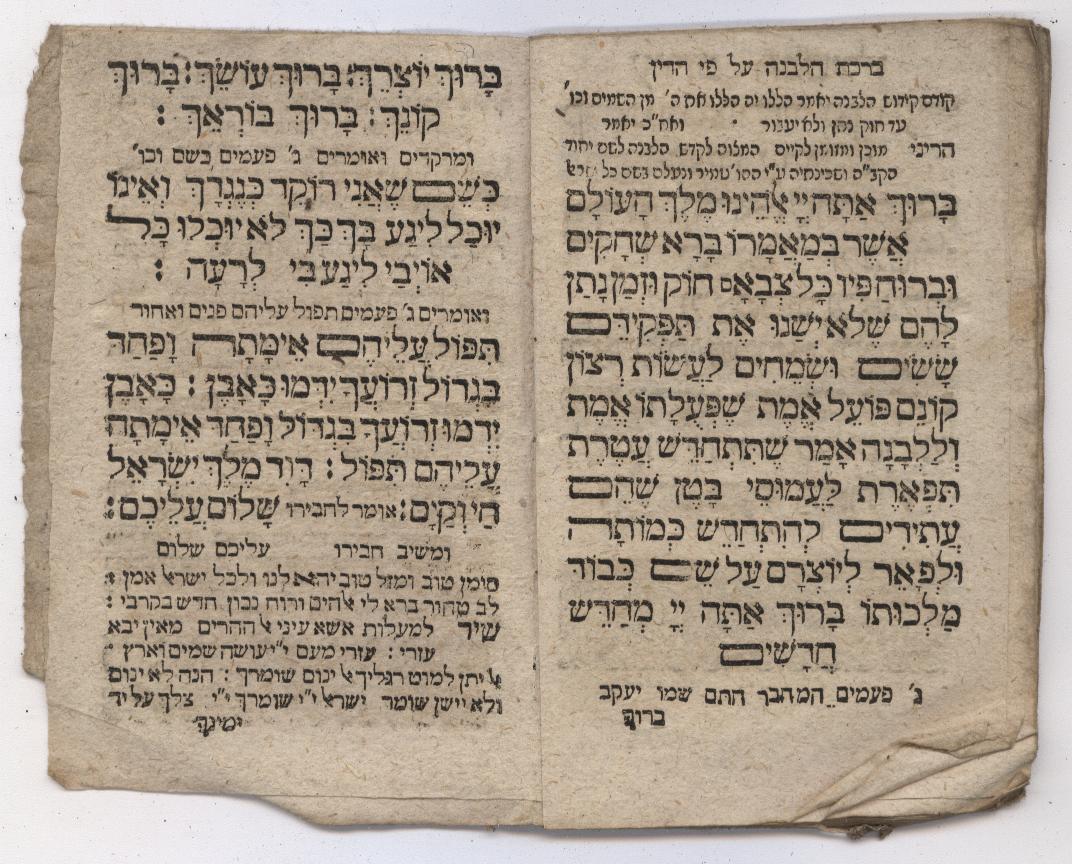 ברכת הלבנה על פי הדין
קודם קידוש הלבנה יאמר הללו יה הללו את ה' מן השמים וכו'
עד חוק נתן ולא יעבור ואח"כ יאמר
הריני מוכן ומזומן לקיים המצוה לקדש הלבנה לשם יחוד
הקב"ה ושכינתיה ע"י ההו' טמיר ונעלם בשם כל ישראל
בָּרוּךְ אַתָּה יְיָ אֱלֹהֵינוּ מֶלֶךְ הָעוֹלָם
אֲשֶׁר בְּמַאֲמָרוֹ בָּרָא שְׁחָקִים
וּבְרוּחַ פִּיו כָּל צְבָאָם חוֹק וּזְמַן נָתַן
לָהֶם שֶׁלֹא יְשַׁנּוּ אֶת תַּפְקִידָם
שָׂשִׂים וּשְׂמֵחִים לַעֲשׂוֹת רְצוֹן
קוֹנָם פּוֹעֵל אֱמֶת שֶׁפְּעֻלָתוֹ אֱמֶת
וְלַלְבָנָה אָמַר שֶׁתִּתְחַדֵּשׁ עֲטֶרֶת
תִּפְאֶרֶת לַעֲמוּסֵי בָטֶן שֶׁהֵם
עֲתִידִים לְהִתְחַדֵּשׁ כְּמוֹתָהּ
וּלְפָאֵר לְיוֹצְרָם עַל שֵׁם כְּבוֹד
מַלְכוּתוֹ בָּרוּךְ אַתָּה יְיָ מְחַדֵּשׁ
חֳדָשִׁים
ג' פעמים המחבר חתם שמו יעקב
ברוך
בָּרוּךְ יוֹצְרֵךְ: בָּרוּךְ עוֹשֵׂךְ: בָּרוּךְ
קוֹנֵךְ: בָּרוּךְ בּוֹרְאֵךְ:
ומרקדים ואומרים ג' פעמים כשם וכו'
כְּשֵׁם שֶׁאֲנִי רוֹקֵד כְּנֶגְדֵּךְ וְאֵינוֹ
יוּכַל לִיגַּע בָּךְ כַּךְ לֹא יוּכְלוּ כָּל
אוֹיְבַי לִיגַּע בִּי לְרָעָה:
ואומרים ג' פעמים תפול עליהם פנים ואחור
תִּפּוֹל עֲלֵיהֶם אֵימָתָה וָפַחַד
בִּגְדוֹל זְרוֹעֲךָ יִדְּמוּ כָּאָבֶן: כָּאָבֶן
יִדְּמוּ זְרוֹעֲךָ בִּגְדוֹל וָפַחַד אֵימָתָה
עֲלֵיהֶם תִּפּוֹל: דָּוִד מֶלֶךְ יִשְׂרָאֵל
חַי וְקַיָם: אומר לחבירו שָׁלוֹם עֲלֵיכֶם:
ומשיב חבירו עליכם שלום
סומן טוב ומזל טוב יהא לנו ולכל ישראל אמן:
לב טהור ברא לי אלהים ורוח נכון חדש בקרבי:
שיר למעלות אשא עיני אל ההרים מאין יבא
עזרי: עזרי מעם י"י עושה שמים וארץ
אל יתן למוט רגליך אל ינום שומרך: הנה לא ינום
ולא יישן שומר ישראל י"י שומרך י"י צלך על יד
ימינך